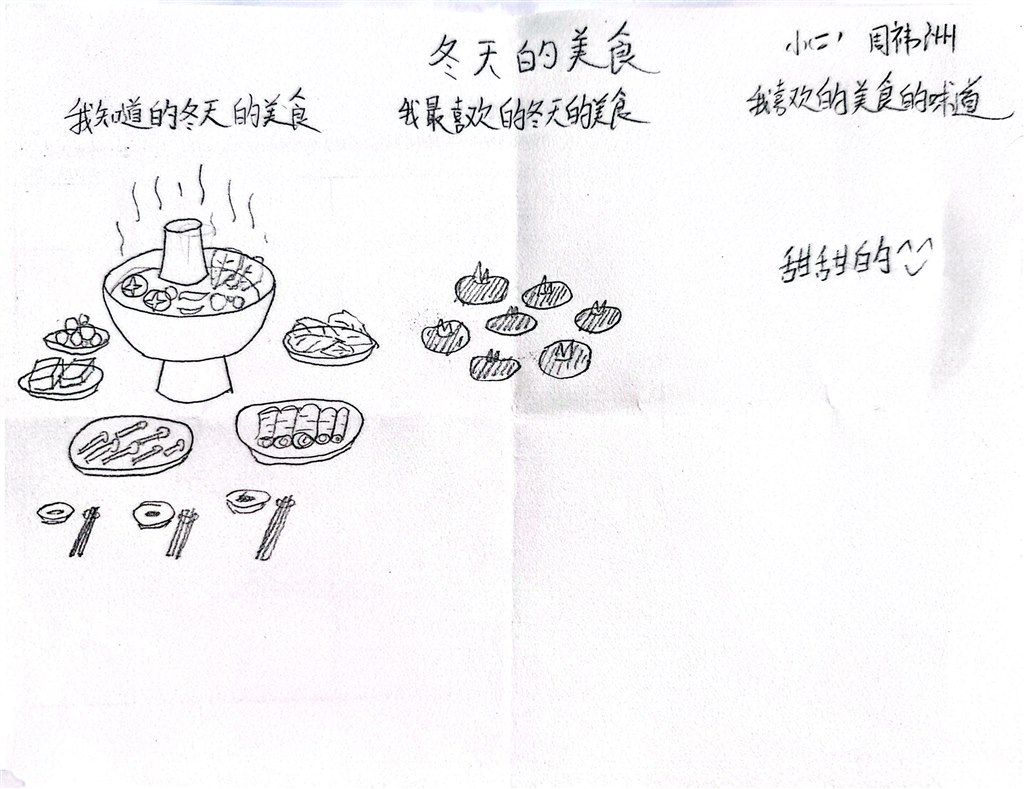 冬天的美食
小二1 周祎洲
我知道的冬天的美食
我最喜欢的冬天的美食
我喜欢的美食的味道
甜甜的^^